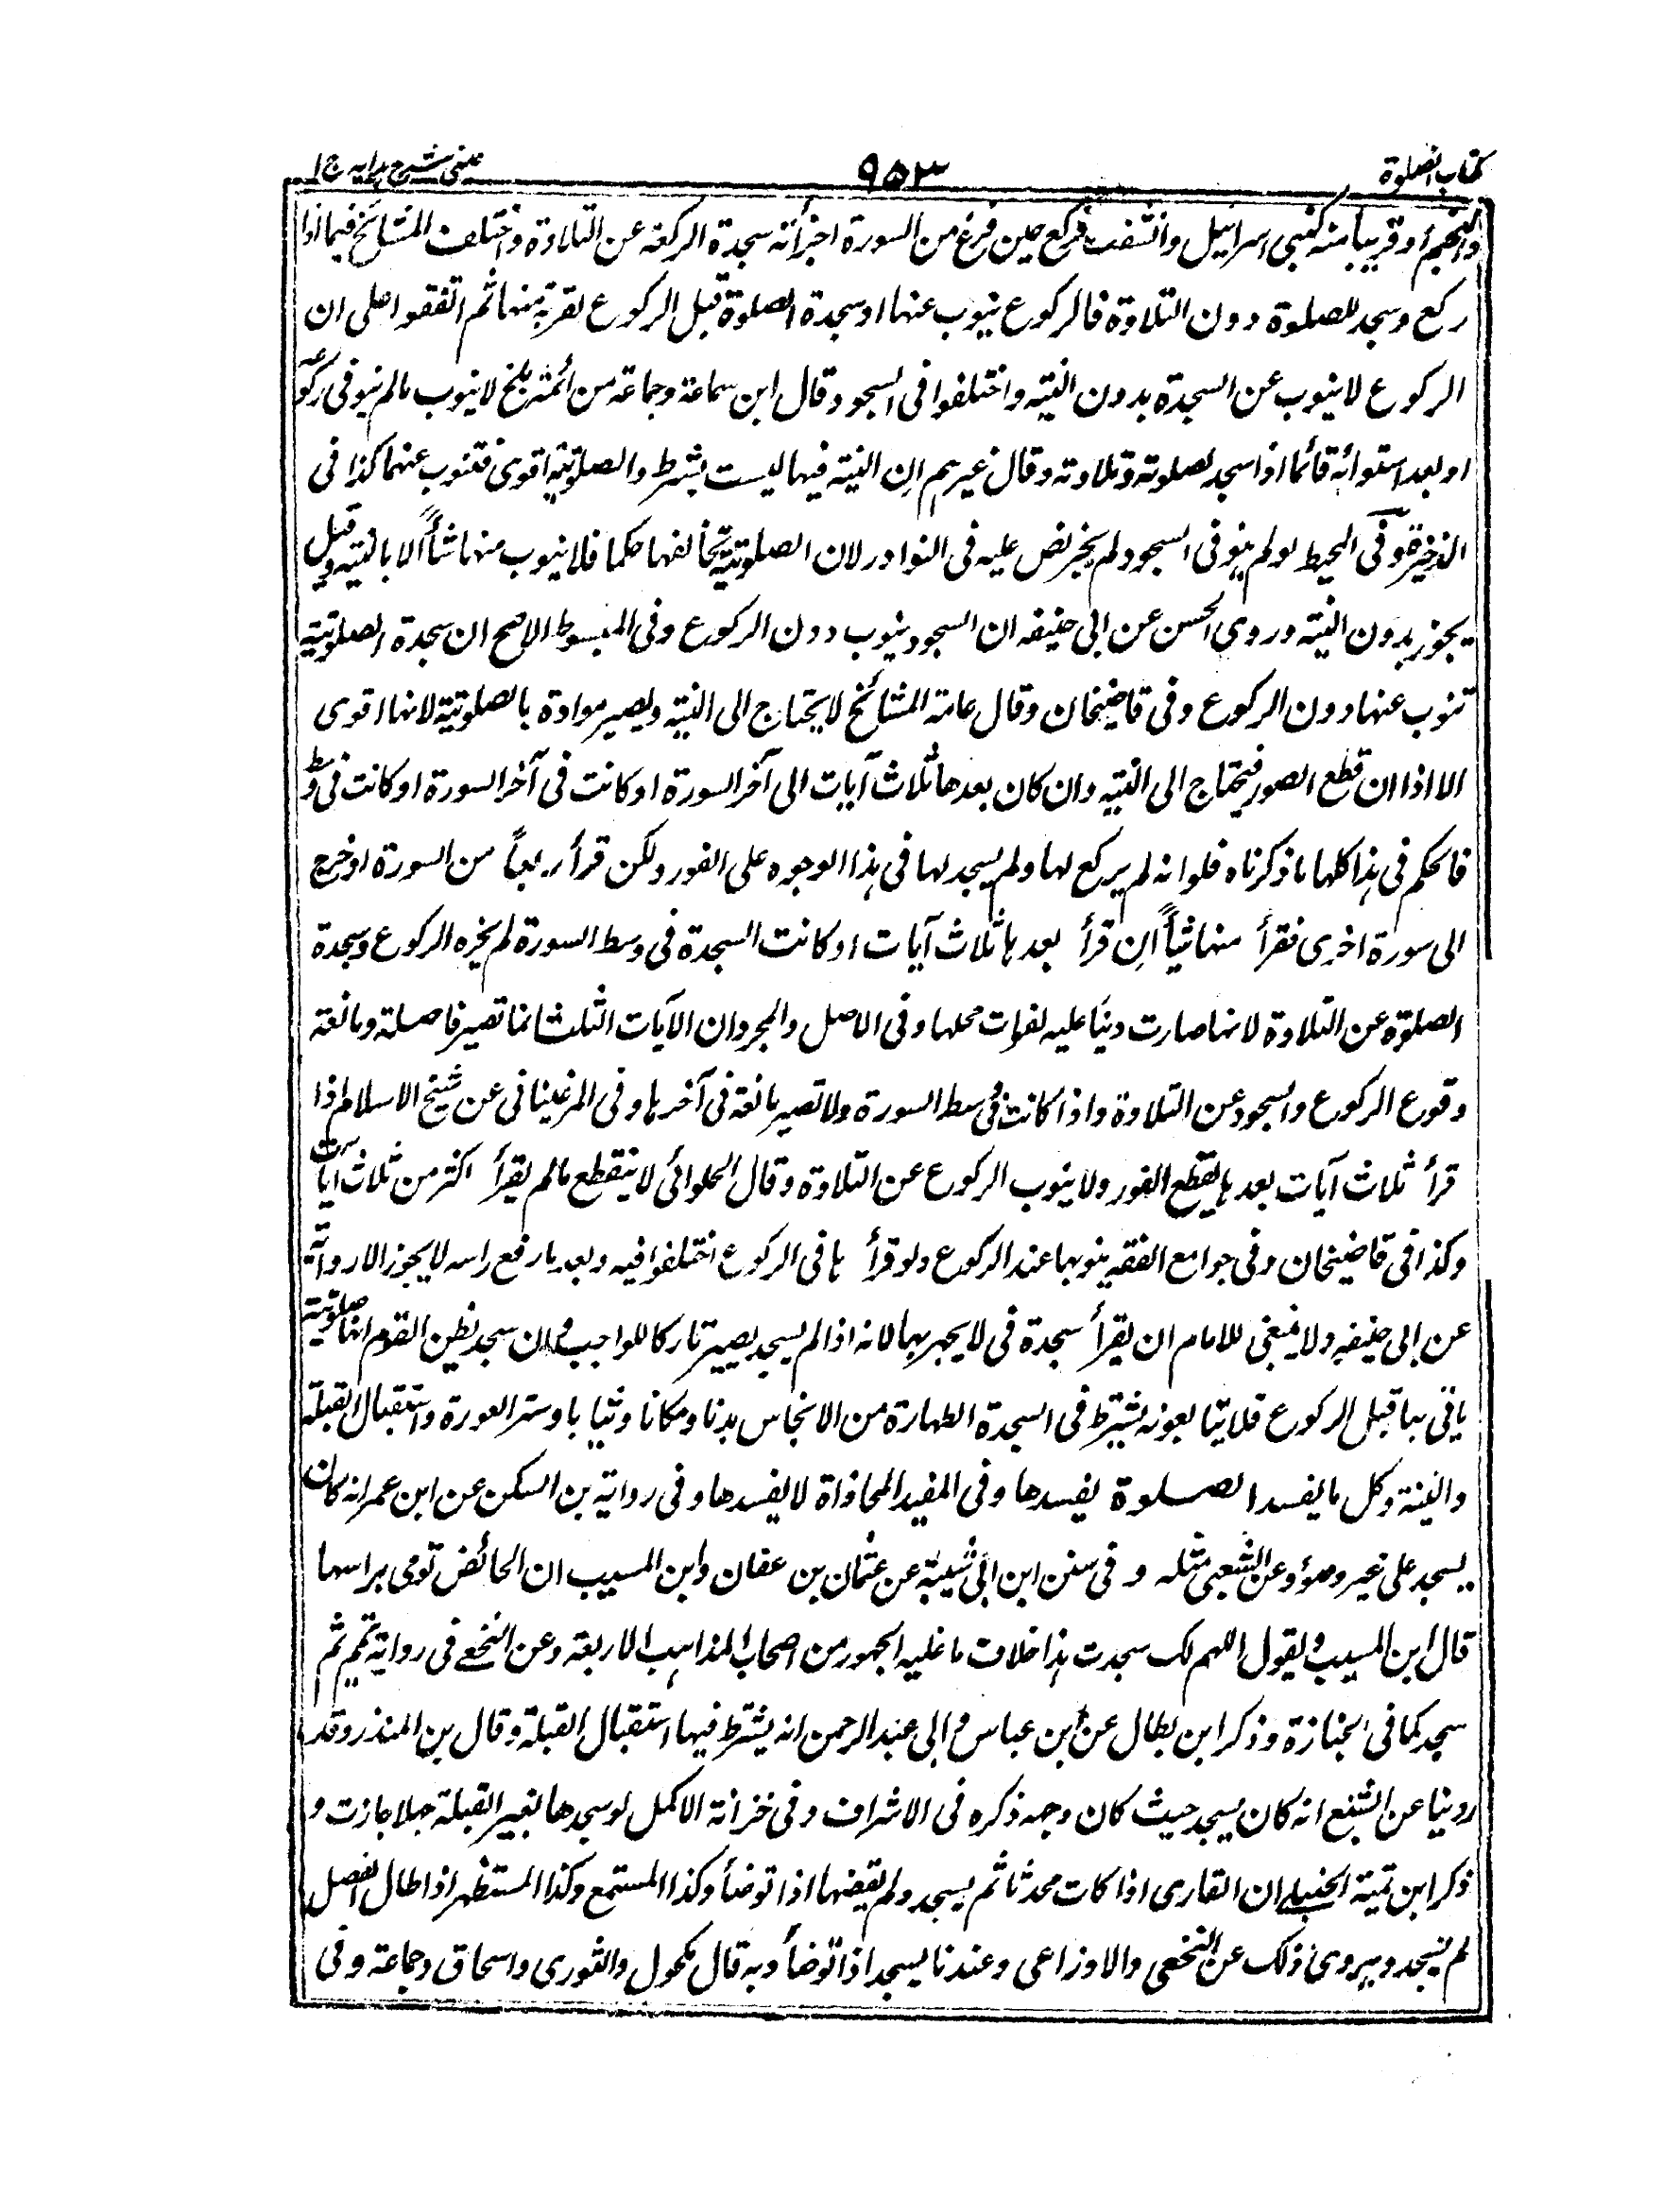 كتاب الصلوة
٩٥٣
عينى شرح هدايه ج ا
والنجم أو قريبا منه كبنى اسرائيل وانشقت فركع حين فرغ من السورة اجزأته سجدة الركعة عن التلاوة واختلف المشائخ فيما اذا
ركع وسجد للصلوة دون التلاوة فالركوع ينوب عنها او سجدة الصلوة قبل الركوع لقربه منها ثم اتفقوا على ان
الركوع لا ينوب عن السجدة بدون النية واختلفوا فى السجود وقال ابن سماعة وجماعة من ائمة بلخ لا ينوب مالم ينو فى ركوعه
او بعد استوائه قائما اذا سجد لصلوته وتلاوته وقال غيرهم ان النية فيها ليست بشرط والصلوتية اقوى فتنوب عنهما كذا فى
الذخيرة وفى المحيط لو لم ينو فى السجود لم يجز نص عليه فى النوادر لان الصلوتية تخالفها حكما فلا ينوب منها شأ الا بالنية وقيل
يجوز بدون النية وروى الحسن عن ابى حنيفه ان السجود ينوب دون الركوع وفى المبسوط الاصح ان سجدة الصلوتية
تنوب عنها دون الركوع وفى قاضيخان وقال عامة المشائخ لا يحتاج الى النية ويصير موادة بالصلوتية لانها اقوى
الا اذا ان قطع الصور فيحتاج الى النية وان كان بعدها ثلاث آيات الى آخر السورة او كانت فى آخر السورة او كانت فى وسط
فالحكم فى هذا كلها ما ذكرناه فلو انه لم يركع لها ولم يسجد لها فى هذا الوجوه على الفور ولكن قرأ ربعاً من السورة او خرج
الى سورة اخرى فقرأ منها شيأً ان قرأ بعدها ثلاث آيات او كانت السجدة فى وسط السورة لم يجزه الركوع وسجدة
الصلوة عن التلاوة لانها صارت دينا عليه لفوات محلها وفى الاصل والمجرد ان الآيات الثلث انما تصير فاصلة ومانعة
وقوع الركوع والسجود عن التلاوة واذا كانت فى وسط السورة ولا تصير مانعة فى آخرها وفى المرغينانى عن شيخ الاسلام اذا
قرأ ثلاث آيات بعدها ينقطع الفور ولا ينوب الركوع عن التلاوة وقال الحلوائى لا ينقطع مالم يقرأ اكثر من ثلاث آيات
وكذا فى قاضيخان وفى جوامع الفقه ينويها عند الركوع ولو قرأ ها فى الركوع اختلفوا فيه وبعد يا رفع راسه لا يجوز الا رواية
عن ابى حنيفه ولا ينبغى للامام ان يقرأ سجدة فى لا يجهر بها لانه اذا لم يسجد يصير تاركا للواجب وان سجد يظن القوم انها صلوتية
ياتى بها قبل الركوع فلا يتابعونه يشترط فى السجدة الطهارة من الانجاس بدنا ومكانا وثيابا وستر العورة واستقبال القبلة
والنية وكل ما يفسد الصلوة يفسدها وفى المفيد المحاذاة لا يفسدها وفى رواية بن السكن عن ابن عمر انه كان
يسجد على غير وضوء وعن الشعبى مثله و فى سنن ابن ابى شيبة عن عثمان بن عفان وابن المسيب ان الحائض تومى براسها
قال ابن المسيب ويقول اللهم لك سجدت هذا خلاف ما عليه الجمهور من اصحاب المذاهب الاربعة وعن النخعى فى رواية تيمم ثم
سجد كما فى الجنازة وذكر ابن بطال عن ابن عباس و ابى عبد الرحمن انه يشترط فيها استقبال القبلة وقال بن المنذر وقد
روينا عن الشبع انه كان يسجد حيث كان وجهه ذكره فى الاشراف وفى خزانة الاكمل لو سجدها لغير القبلة جهلا جازت و
ذكر ابن تميته الحنبلى ان القارى اذا كات محدثا ثم يسجد ولم يقضها اذا توضأ وكذا المستمع وكذا المستظهر اذا طال الفصل
لم يسجد ويروى ذلك عن النخعى والاوزاعى وعندنا يسجد اذا توضأ وبه قال مكحول والثورى واسحاق وجماعة وفى